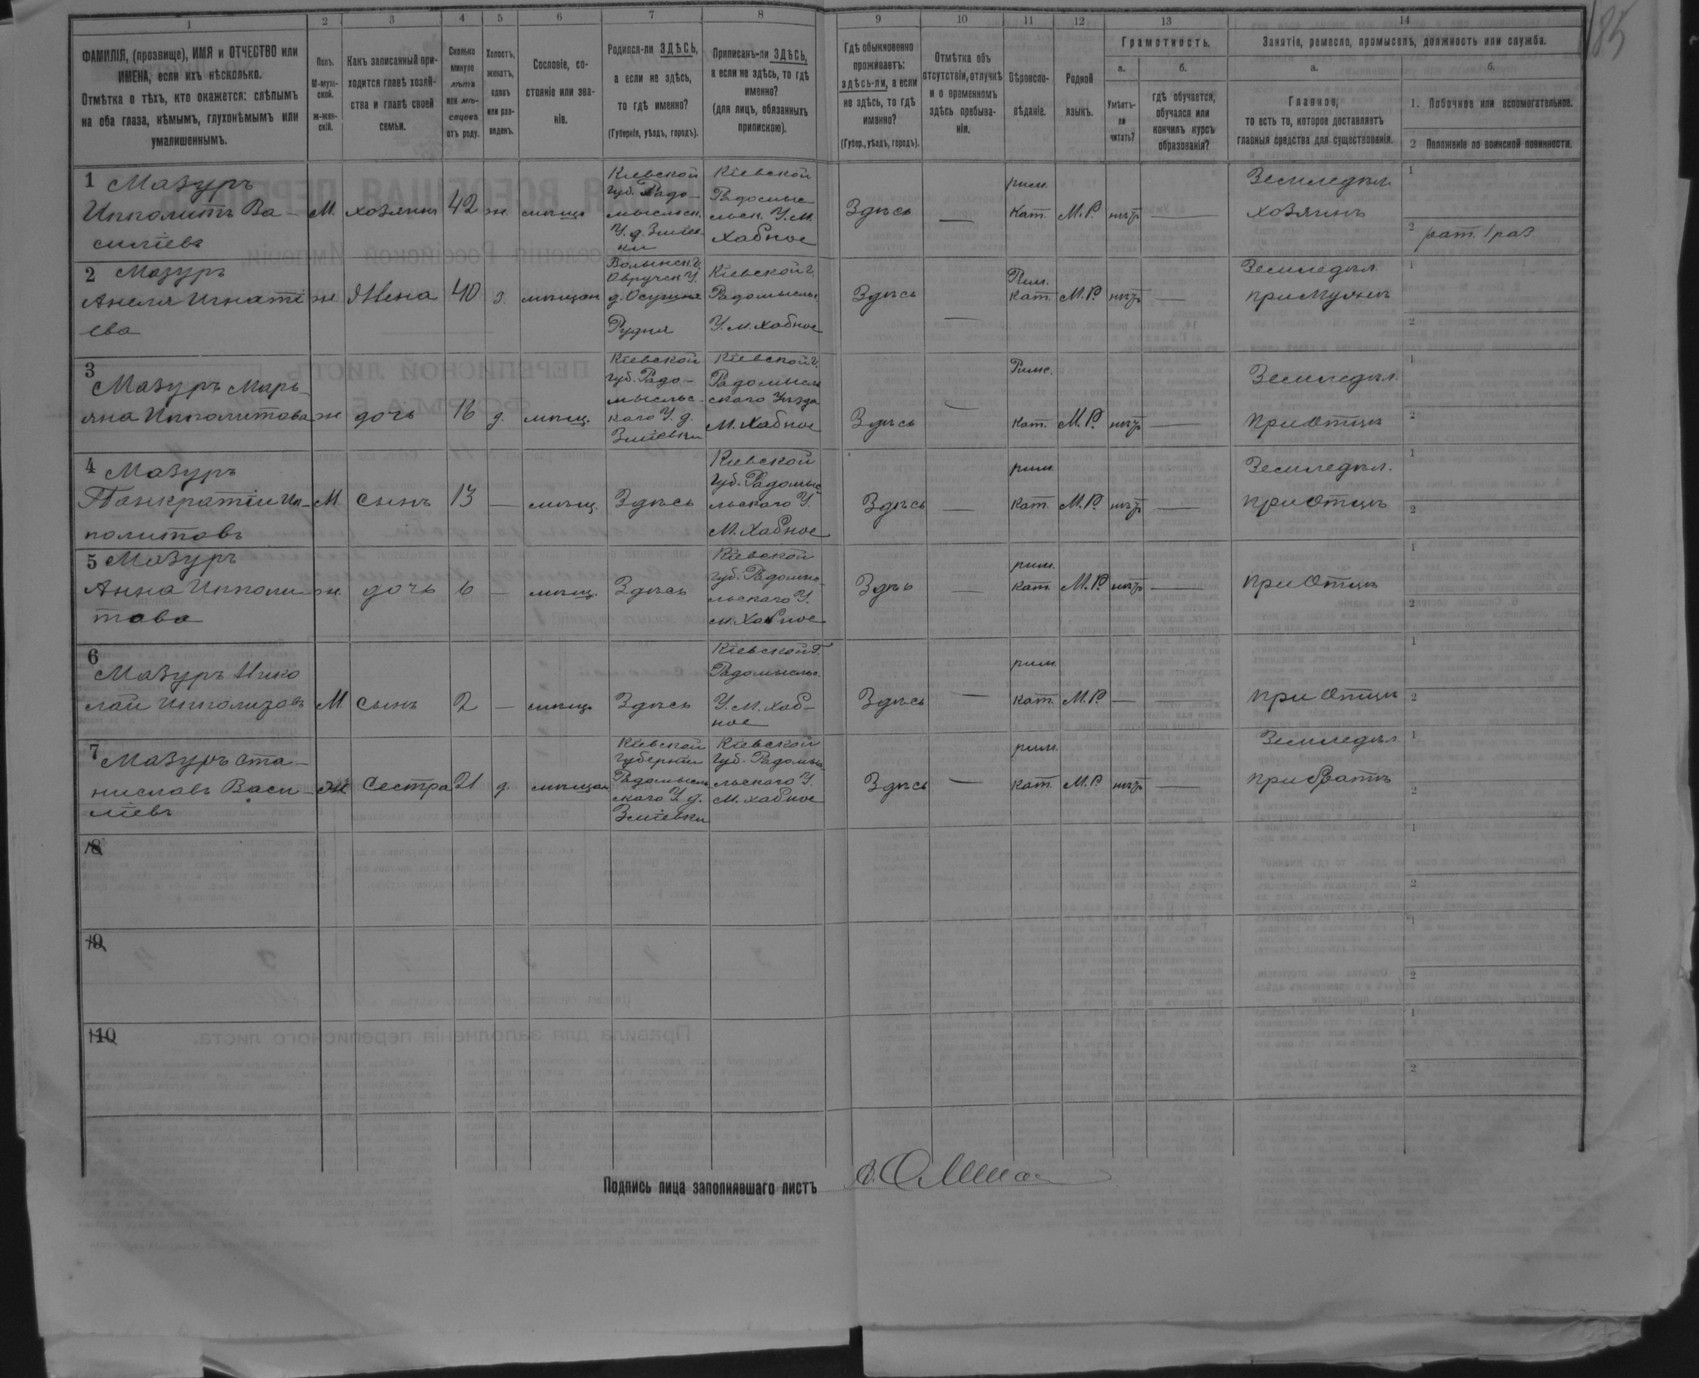 185
1 2 3 4 5 6 7 8 9 10 11 12 13 14
ФАМИЛІЯ, (прозвище), ИМЯ и ОТЧЕСТВО или
ИМЕНА, если ихъ нѣсколько.
Отмѣтка о тѣхъ, кто окажется: слѣпымъ
на оба глаза, нѣмымъ, глухонѣмымъ или
умалишеннымъ.
Полъ.
М-муж-
ской.
ж-жен-
скій.
Какъ записанный при-
ходится главѣ хозяй-
ства и главѣ своей
семьи.
Сколько
минуло
лѣтъ
или мѣ-
сяцевъ
отъ роду.
Холостъ,
женатъ,
вдовъ
или раз-
веденъ.
Сословіе, со-
стояніе или зва-
ніе.
Родился-ли ЗДѢСЬ,
а если не здѣсь,
то гдѣ именно?
(Губернія, уѣздъ, городъ).
Приписанъ-ли ЗДѢСЬ,
а если не здѣсь, то гдѣ
именно?
(для лицъ, обязанныхъ
припискою).
Гдѣ обыкновенно
проживаетъ:
здѣсь-ли, а если
не здѣсь, то гдѣ
именно?
(Губер., уѣздъ, городъ).
Отмѣтка объ
отсутствіи, отлучкѣ
и о временномъ
здѣсь пребыва-
ніи.
Вѣроиспо-
вѣданіе.
Родной
языкъ.
Грамотность.
а.
Умѣетъ-
ли
читать?
б.
гдѣ обучается,
обучался или
кончилъ курсъ
образованія?
Занятіе, ремесло, промыселъ, должность или служба.
а.
Главное,
то есть то, которое доставляетъ
главныя средства для существованія.
б.
1. Побочное или вспомогательное.
2 Положеніе по воинской повинности.
1 Мазуръ
Ипполитъ Ва-
силіевъ
М. хозяинъ 42 ж. мѣщ
Кіевской
губ. Радо-
мысльск.
У. д. Зміев-
ки
Кіевской
Радомыс-
льск. У. М.
Хабное
Здѣсь —
рим.
кат. М.Р. нѣтъ —
Земледѣл.
хозяинъ
1
2 рат. 1 раз.
2 Мазуръ
Анеля Игнаті
ева
ж Жена 40 з. мѣщан
Волынск.
Овручск У.
д. Осушня
Рудня
Кіевской г.
Радомысль
У. м. Хабное
Здѣсь —
Рим.
кат. М.Р. нѣтъ —
Земледѣл.
при Мужѣ
1
2
3
Мазуръ Марь-
яна Ипполитова
ж дочь 16 д. мѣщ.
Кіевской
губ. Радо-
мысльс-
каго У. д.
Зміевки
Кіевской г.
Радомысль
скаго Уѣзда
М. Хабное
Здѣсь —
Римс.
кат. М.Р. нѣтъ —
Земледѣл.
при Отцѣ
1
2
4 Мазуръ
Панкратій Ип-
политовъ
М. сынъ 13 — мѣщ. Здѣсь
Кіевской
губ. Радомыс
льскаго У.
М. Хабное
Здѣсь —
рим.
кат. М.Р. нѣтъ —
Земледѣл.
при Отцѣ
1
2
5 Мазуръ
Анна Ипполи-
това
ж. дочь 6 — мѣщ. Здѣсь
Кіевской
губ. Радомыс-
льскаго У.
м. Хабное
Здѣсь —
рим.
кат. М.Р. нѣтъ —
при Отцѣ
1
2
6
Мазуръ Нико
лай Ипполитовъ
М сынъ 2 — мѣщ Здѣсь
Кіевской Г.
Радомысль.
У. М. Хаб-
ное
Здѣсь —
рим.
кат. М.Р. — —
при Отцѣ
1
2
7 Мазуръ Ста-
ниславъ Васи-
ліевъ
ж Сестра 21 д. мѣщан
Кіевской
губерніи
Радомысль
скаго У. д.
Зміевки
Кіевской
губ. Радомы
льскаго У.
м. Хабное
Здѣсь —
рим.
кат. М.Р. нѣтъ —
Земледѣл
при братѣ
1
2
8
1
2
9
1
2
10
1
2
Подпись лица заполнявшаго листъ